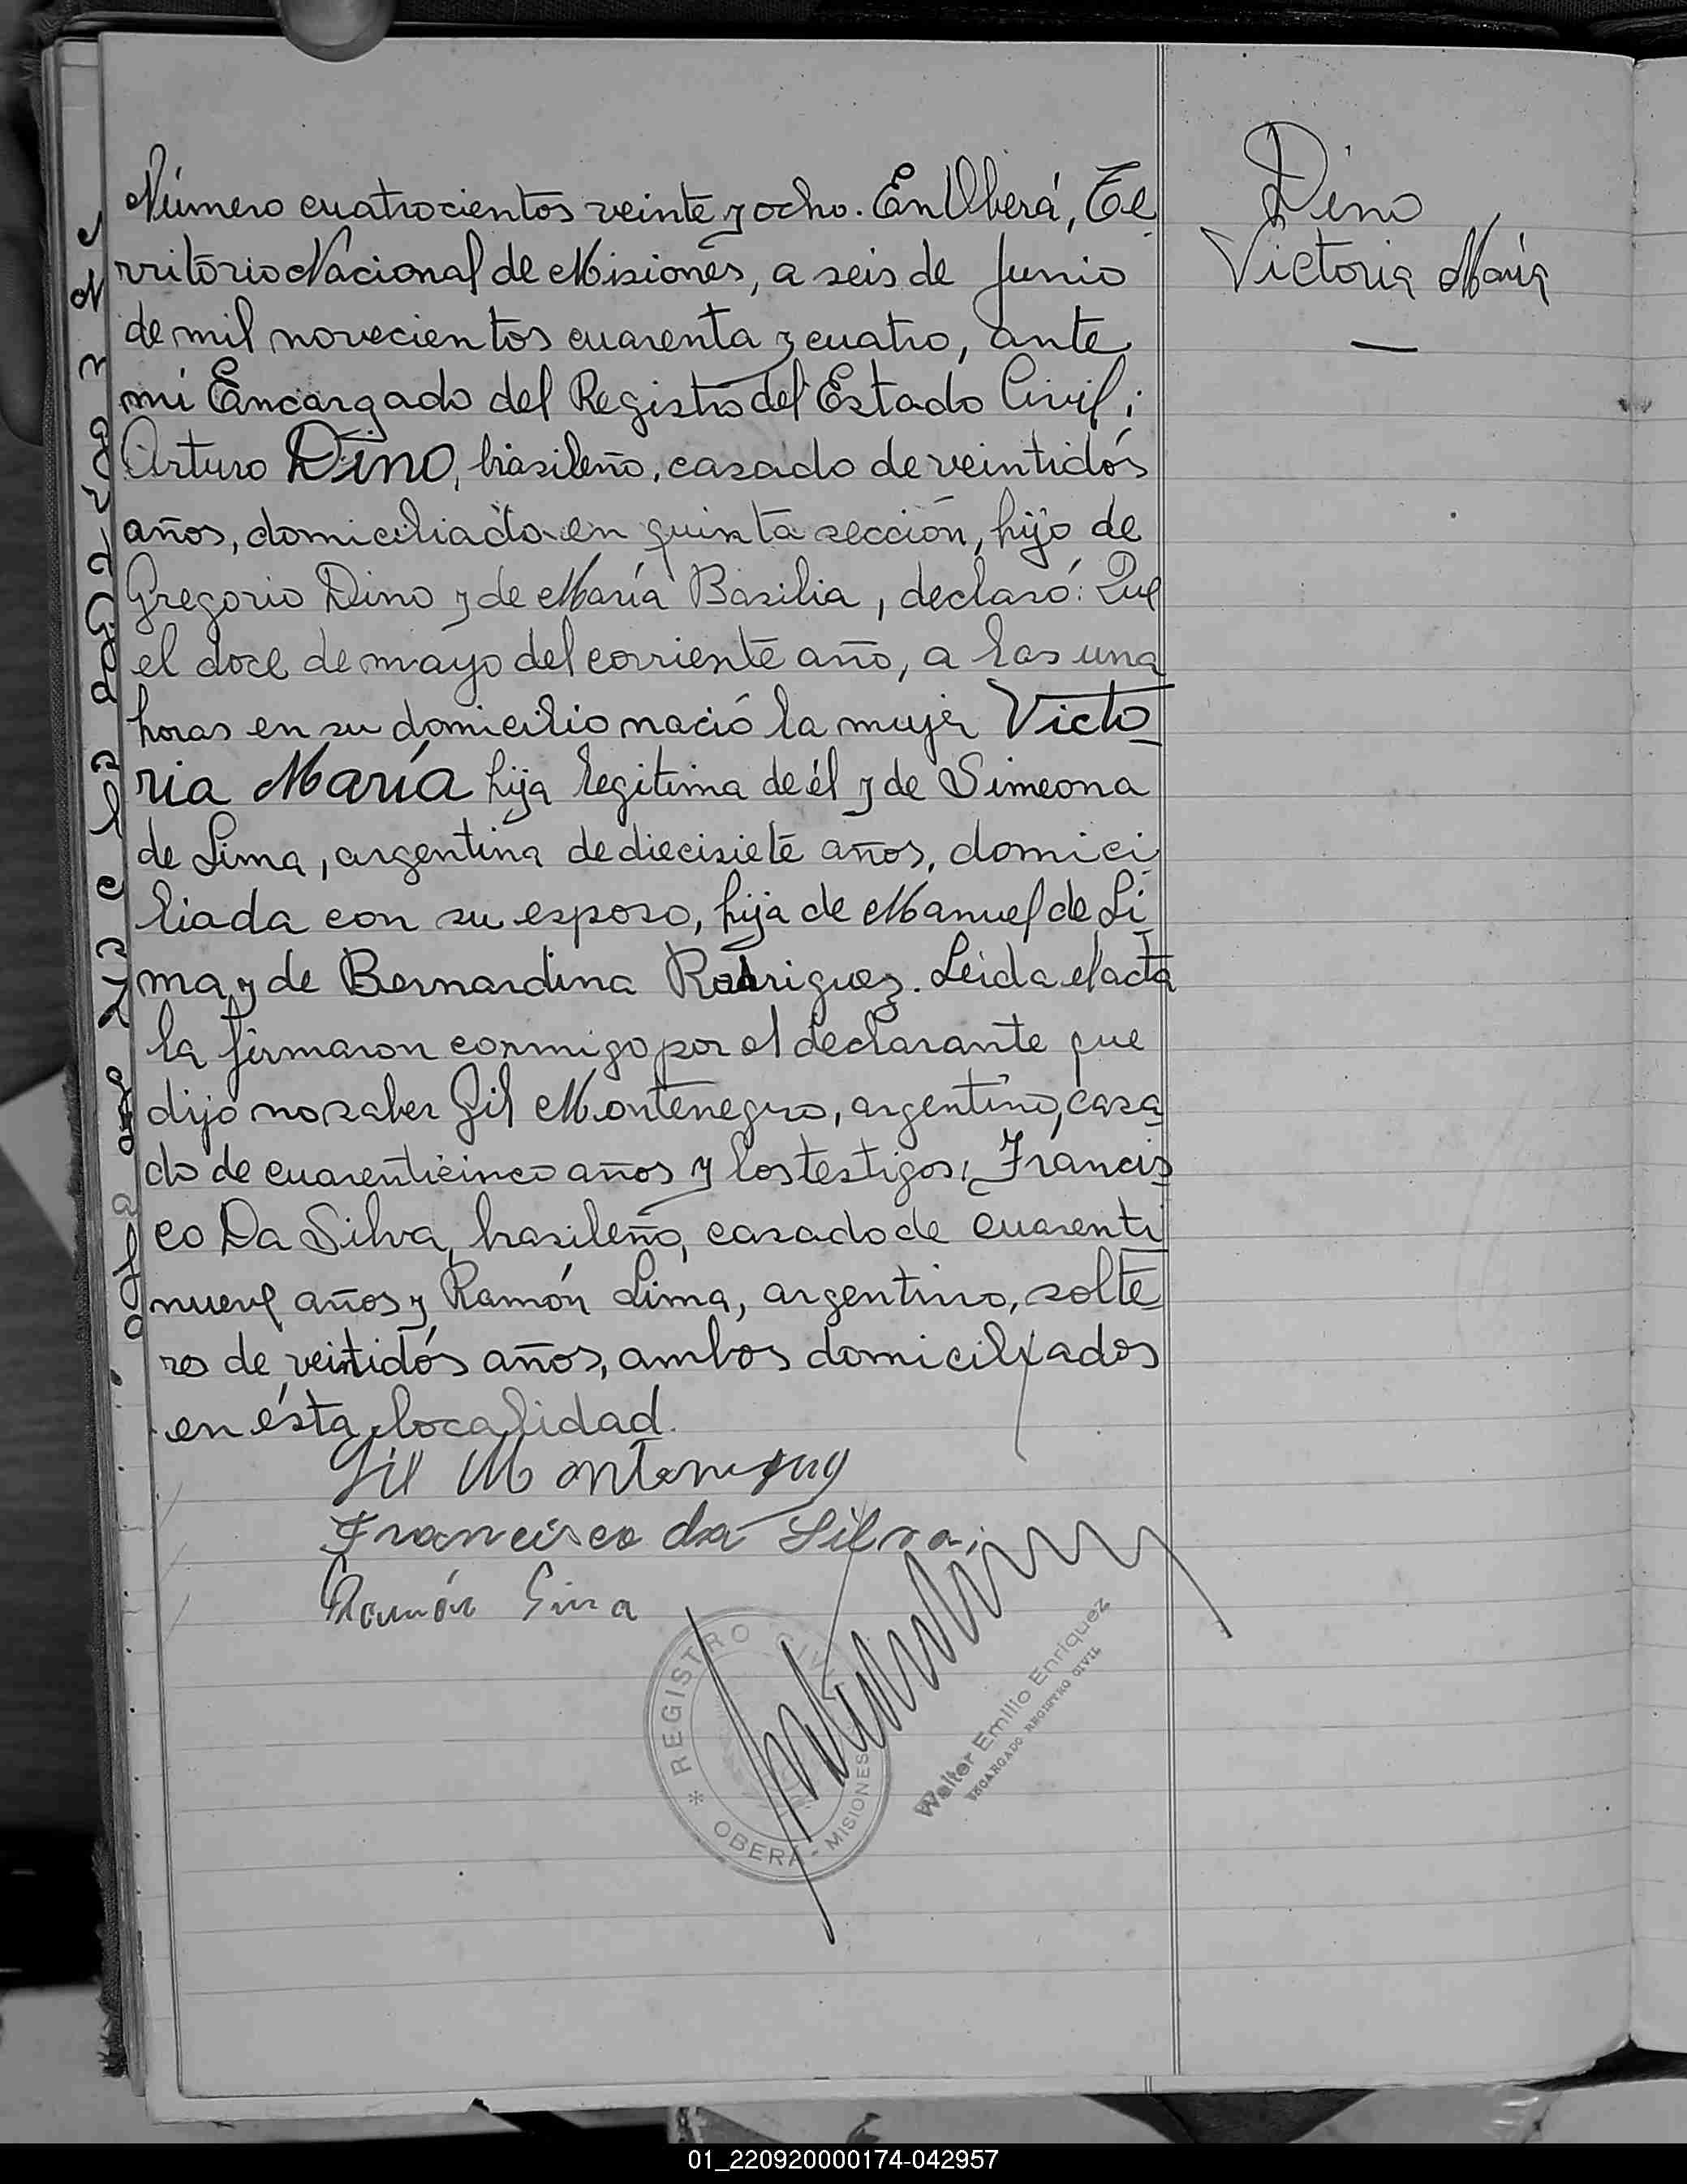 Dino
Victoria María
Número cuatrocientos veinte y ocho. En Oberá, Te
rritorio Nacional de Misiones, a seis de Junio
de mil novecientos cuarenta y cuatro, ante
mí Encargado del Registro del Estado Civil;
Arturo Dino, brasileño, casado de veintidós
años, domiciliado en quinta sección, hijo de
Gregorio Dino y de María Basilia, declaró: Que
el doce de mayo del corriente año, a las una
horas en su domicilio nació la mujer Victo
ria María hija legítima de él y de Simeona
de Lima, argentina de diecisiete años, domici
liada con su esposo, hija de Manuel de Li
ma y de Bernardina Rodriguez. Leida el acta
la firmaron conmigo por el declarante que
dijo no saber Gil Montenegro, argentino, casa
do de cuarenticinco años y los testigos, Francis
co Da Silva, brasileño, casado de cuarenti
nueve años y Ramón Lima, argentino, solte
ro de veintidós años, ambos domiciliados
en ésta localidad.
Gil Montenegro
Francisco da Silva
Ramón Lima
REGISTRO CIVIL
* OBERA - MISIONES
Walter Emilio Enriquez
ENCARGADO REGISTRO CIVIL
01_220920000174-042957